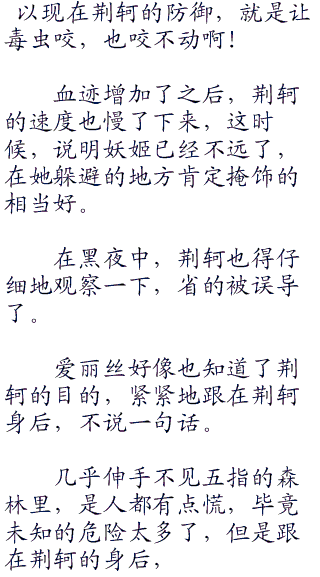 以现在荆轲的防御，就是让
毒虫咬，也咬不动啊！
血迹增加了之后，荆轲
的速度也慢了下来，这时
候，说明妖姬已经不远了，
在她躲避的地方肯定掩饰的
相当好。
在黑夜中，荆轲也得仔
细地观察一下，省的被误导
了。
爱丽丝好像也知道了荆
轲的目的，紧紧地跟在荆轲
身后，不说一句话。
几乎伸手不见五指的森
林里，是人都有点慌，毕竟
未知的危险太多了，但是跟
在荆轲的身后，